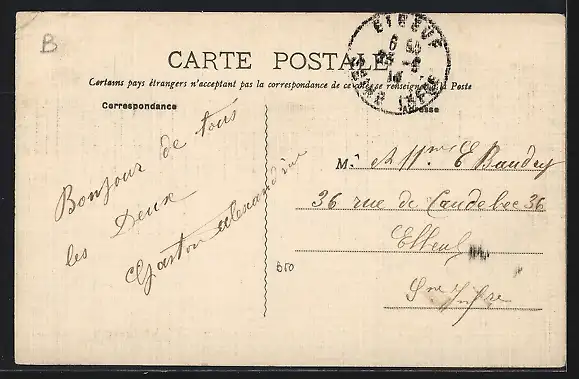 B
CARTE POSTALE
Certains pays étrangers n'acceptent pas la correspondance de ce côté se renseigner à la Poste
Correspondance
Adresse
Bonjour de tous
les Deux
Gaston alexandrine
M. et Mme E Baudry
36 rue de Caudebec 36
Elbeuf
Sne Infre
B50
ELBEUF